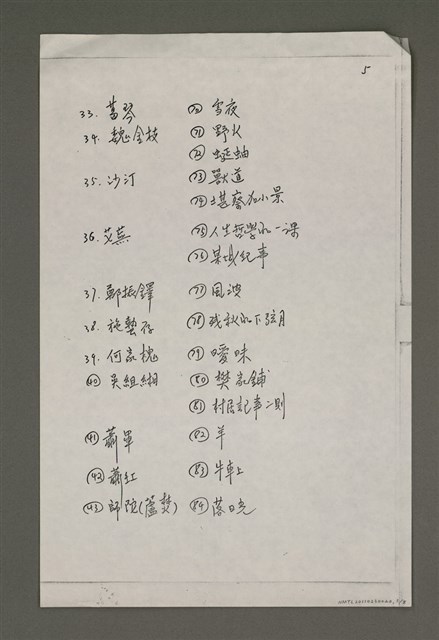 5
33. 葛琴 70 雪夜
34. 魏金枝 71 野火
72 蜒蚰
35. 沙汀 73 獸道
74 堪察加小景
36. 艾蕪 75 人生哲學的一課
76 某城紀事
37. 鄭振鐸 77 風波
38. 施蟄存 78 残秋的下弦月
39. 何家槐 79 曖昧
40 吳組緗 80 樊家鋪
81 村居記事二則
41 蕭軍 82 羊
42 蕭紅 83 牛車上
43 師陀(蘆焚) 84 落日光